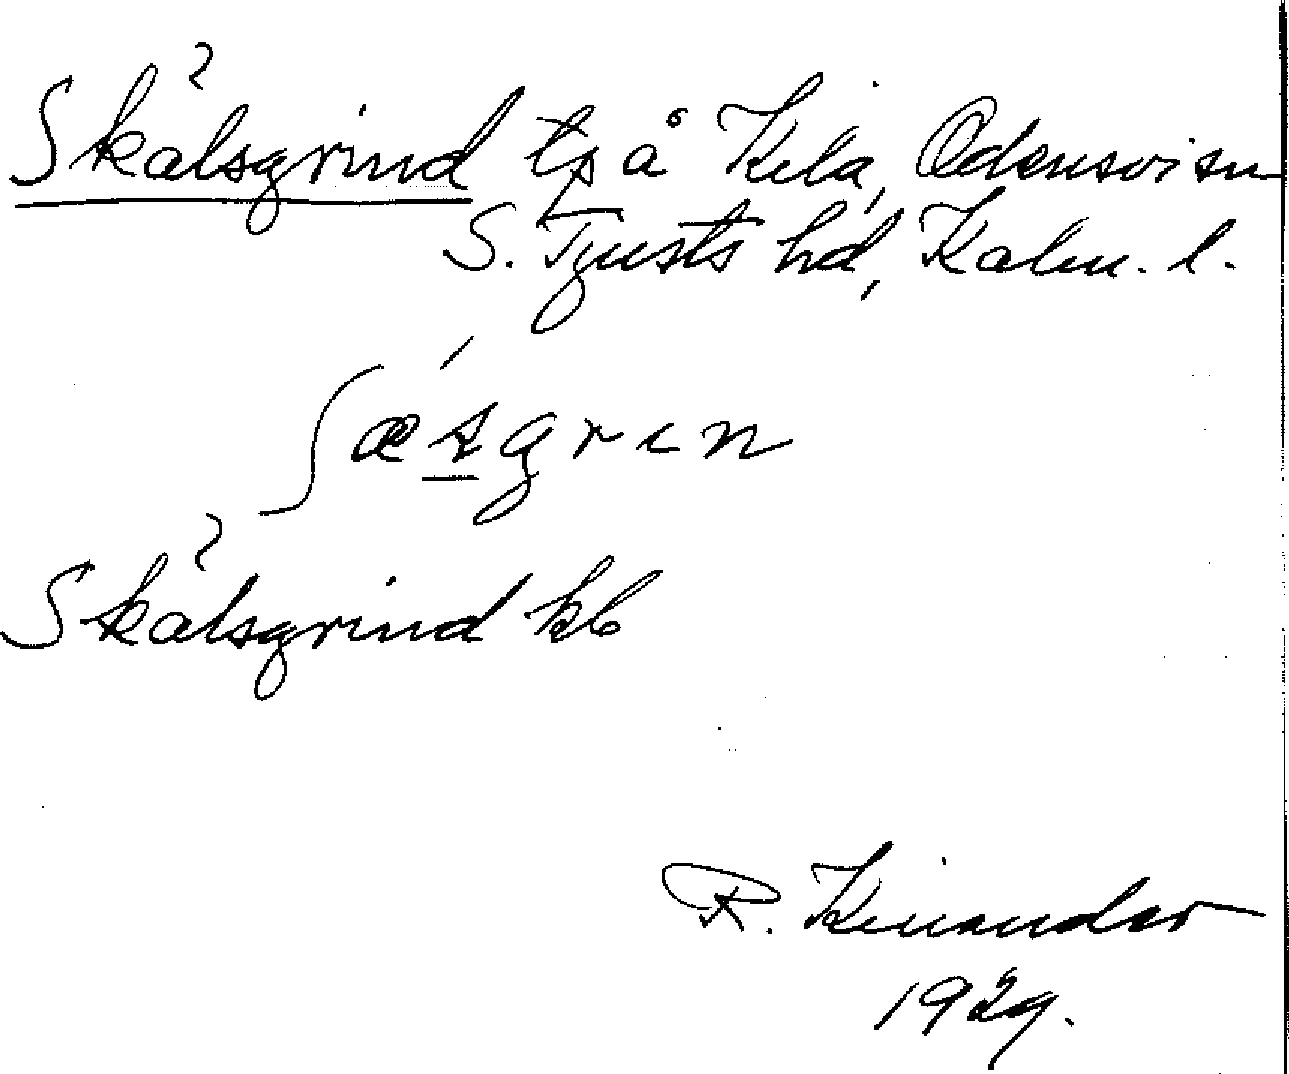 Skälsgrind tp å Kila, Odensvi sn
S. Tjusts hd, Kalm. l.
ʃǽsgrin
Skälsgrind kb
R. Kinander
1929.